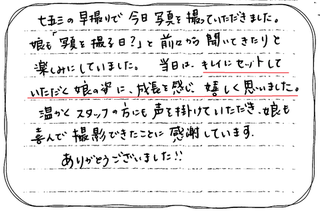 七五三の早撮りで今日写真を撮っていただきました。
娘も「写真を撮る日？」と前々から聞いてきたりと
楽しみにしていました。 当日は、キレイにセットして
いただく娘の姿に、成長を感じ、嬉しく思いました。
温かくスタッフの方にも声を掛けていただき、娘も
喜んで撮影できたことに感謝しています。
ありがとうございました!!